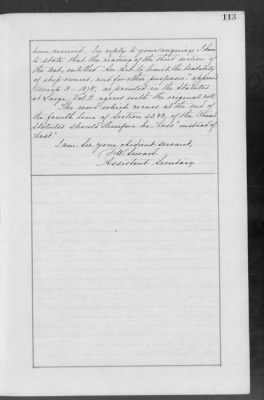 113
been received. In reply to your enquiry, I have
to state that the reading of the third section of
the act, entitled "An Act to limit the liability
of ship owners, and for other purposes" approved
March 3 - 18, as printed in the Statutes
at Large, Vol 9. agrees with the original roll.
The word which occurs at the end of
the fourth line of Section 4283, of the Revised
Statutes should therefore be "loss" instead of
"lost."
I am, Sir, your obedient servant,
Assistant Secretary